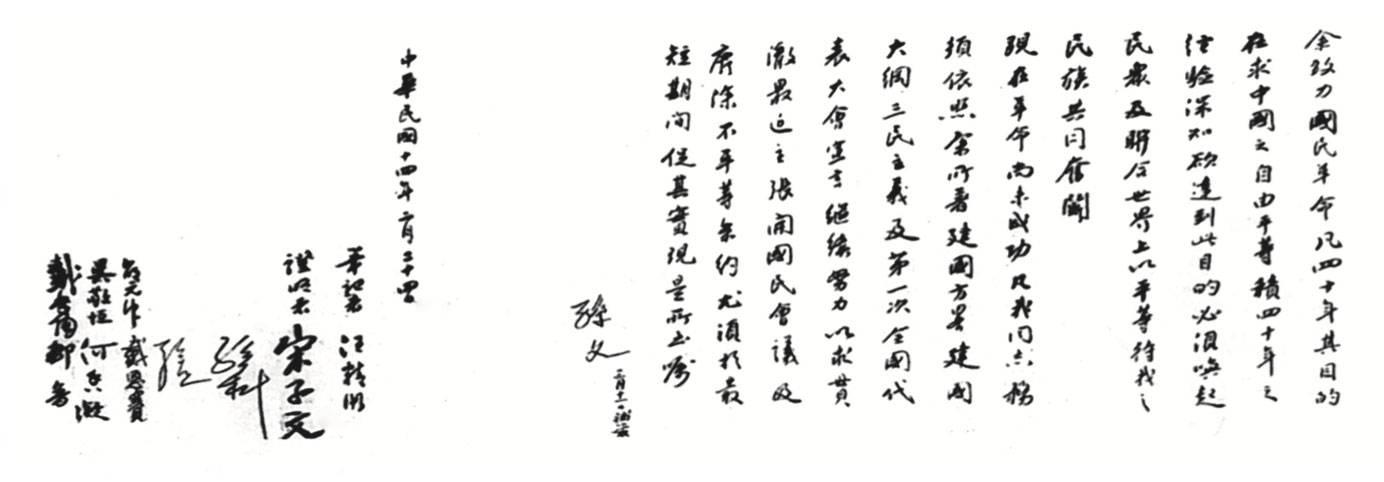 余致力國民革命凡四十年其目的
在求中國之自由平等積四十年之
經驗深知欲達到此目的必須喚起
民眾及聯合世界上以平等待我之
民族共同奮鬭
現在革命尚未成功凡我同志務
須依照余所著建國方畧建國
大綱三民主義及第一次全國代
表大會宣言繼續努力以求貫
澈最近主張開國民會議及
廢除不平等條約尤須於最
短期間促其實現是所至嘱
孫文 三月十一日補簽
中華民國十四年二月二十四日
筆記者 汪精衛
證明者 宋子文
孫科
邵元冲 戴恩賽
吳敬恒 何香凝
戴季陶 鄒魯